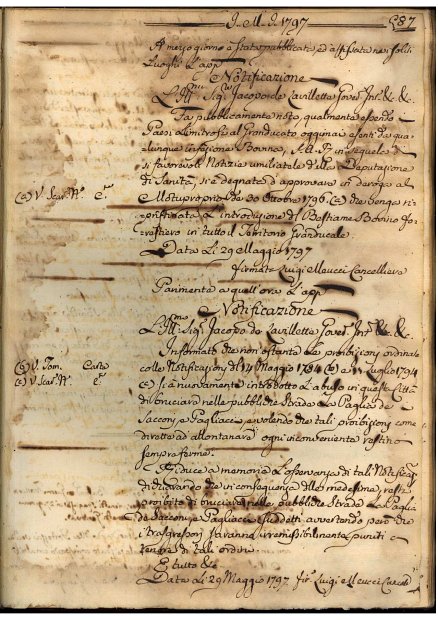 I. M. I. 1797
587
A mezzo giorno è stata pubblicata, ed affissata nei soliti
Luoghi L'app.
Notificazione
L'Ill.mo Sig.r Jacopo de Lavilletta Gover. Int. &. &.
Fa pubblicamente noto, qualmente essendo i
Paesi Limitrofi al Granducato oggimai esenti da qua-
lunque infezione Bovina, S. A. R. in sequela di
sì favorevoli Notizie umiliatele dalla Deputazione
di Sanità, si è degnata d'approvare in deroga al
(a) V. Scar. N.° C.e
Motuproprio de 30 Ottobre 1796 (a) che venga ri-
pristinata L'introduzione di Bestiame Bovino Fo-
restiero in tutto il Territorio Granducale.
Data Li 29 Maggio 1797
Firmato Luigi Meucci Cancelliere
Parimente a quell'ora L'app.
Notificazione
L'Ill.mo Sig.r Jacopo de Lavilletta Gover. Int. &. &.
Informato che non ostante Le proibizioni ordinate
(b) V. Tom. Carte
colle Notificazioni di 14 Maggio 1784 (b) e 11 Luglio 1794
(c) V. Scar. N.° C.e
(c) si è nuovamente introdotto L'abuso in questa Città
di bruciare nelle pubbliche Strade La Paglia de
Sacconi, e Pagliacci, e volendo che tali proibizioni come
dirette ad allontanare ogni inconveniente restino
sempre ferme.
Riduce a memoria L'osservanza di tali Notificaz.
dichiarando che in conseguenza delle medesime resti
proibito di bruciare nelle pubbliche Strade La Paglia
de Sacconi, e Pagliacci suddetti, avvertendo però che
i trasgressori saranno irremissibilmente puniti a
tenore di tali ordini
E tutto &.
Data Li 29 Maggio 1797. Fir. Luigi Meucci Cancel.